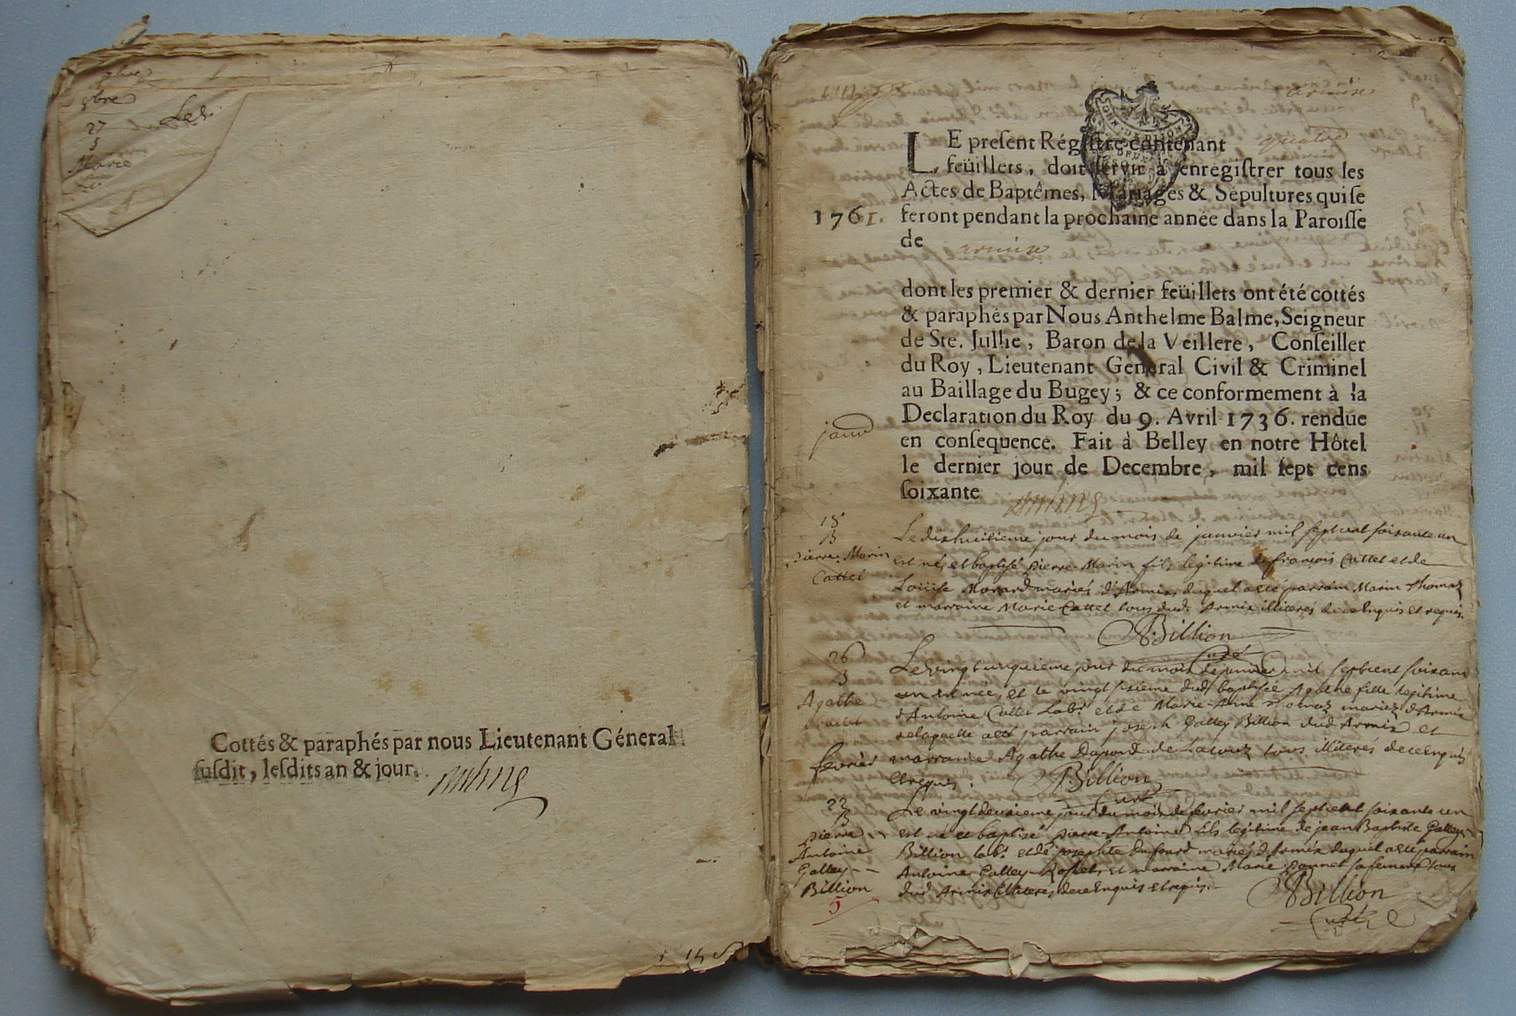 9bre
27
Marie
Cottés & paraphés par nous Lieutenant Géneral
susdit, lesdits an & jour.
quatre
LE present Régistre contenant
feüillets, doit servir à enregistrer tous les
Actes de Baptêmes, Mariages & Sepultures qui se
1761. feront pendant la prochaine année dans la Paroisse
de
dont les premier & dernier feüillets ont été cottés
& paraphés par Nous Anthelme Balme, Seigneur
de Ste. Jullie, Baron de la Veillere, Conseiller
du Roy, Lieutenant General Civil & Criminel
au Baillage du Bugey; & ce conformement à la
Declaration du Roy du 9. Avril 1736. rendue
en consequence. Fait à Belley en notre Hôtel
le dernier jour de Decembre, mil sept cens
soixante
janv
18
B
Pierre Marin
Cattet
Le dixhuitieme jour du mois de janvier mil sept cent soixante un
est né et baptisé pierre Marin fils legitime de françois Cattet et de
Louise Morard mariés d'Armix duquel a eté parrain Marin thomaz
et marraine Marie Cattet tous dud. Armix illiteres de ce enquis et requis.
Billion
Curé
26
B
Agathe
Le vingt cinquieme jour du mois de janvier mil sept cent soixante
un est née, et le vingt sixieme dud. baptisée Agathe fille legitime
d'Antoine Cattet lab. et de Marie Anne thomaz mariez d'Armix
de laquelle a eté parrain joseph Galley Billion dud. Armix et
marraine Agathe tous illiteres de ce enquis
et requis.
Billion
Curé
fevrier
22
B
pierre
Antoine
Galley
Billion
Le vingt deuxieme jour du mois de fevrier mil sept cent soixante un
est né et baptisé pierre Antoine fils legitime de jean Baptiste Galley
Billion lab. et de josephte Dufour mariés d'Armix duquel a eté parrain
Antoine Galley et marraine Marie sa femme tous
dud. Armix illiteres de ce enquis et requis.
Billion
Curé
5